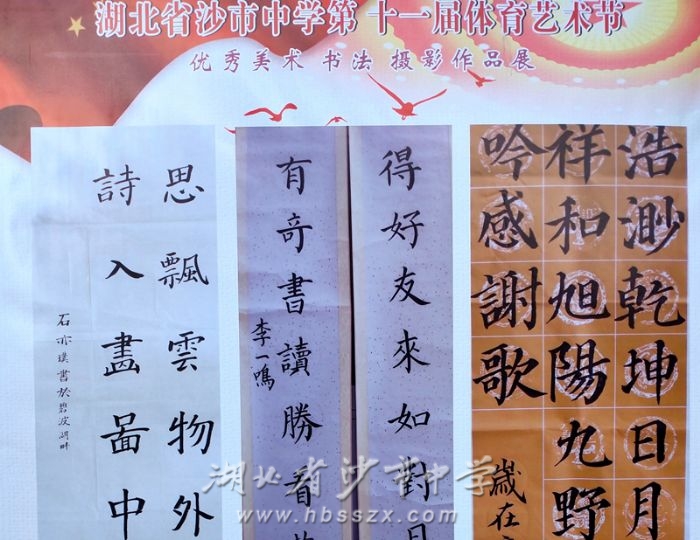 湖北省沙市中学第十一届体育艺术节
优秀美术 书法 摄影作品展
思飄雲物外
詩入畵啚中
石亦璞書於碧波湖畔
得好友來如對月
有奇書讀勝看
李一鳴
浩渺乾坤日月
祥和旭陽九野
吟感謝歌
歲在
湖北省沙市中学
www.hbsszx.com